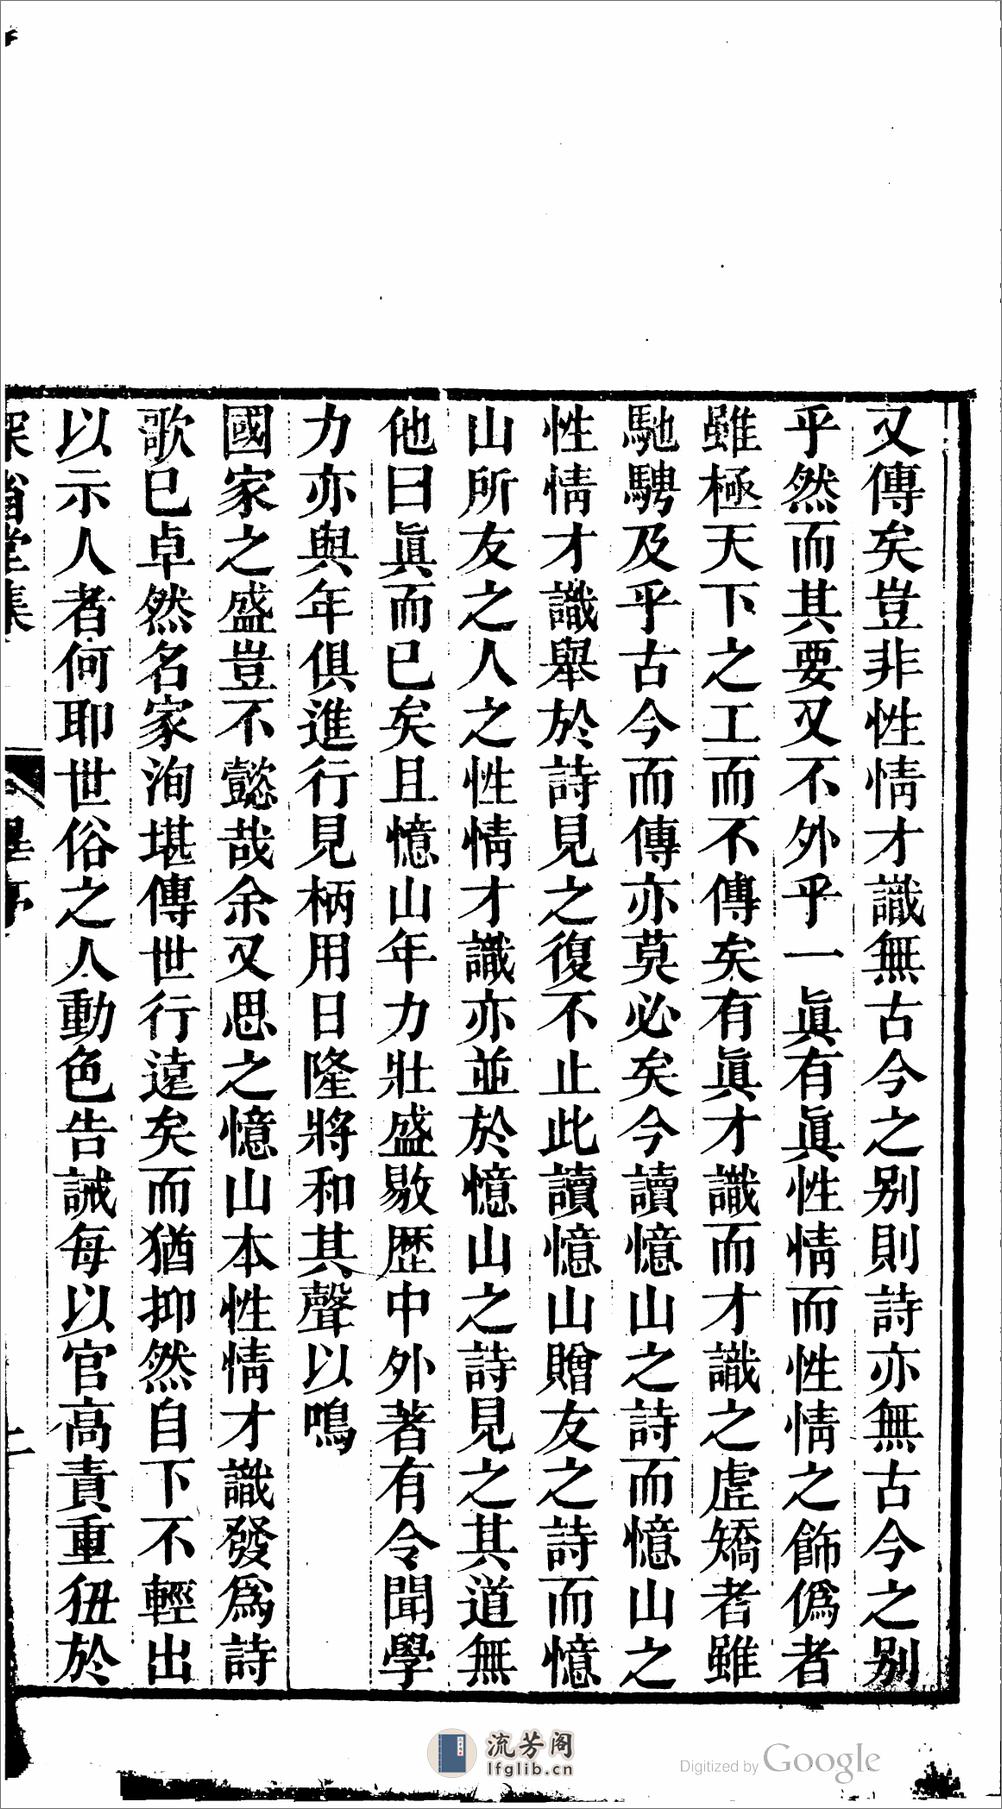 又傳矣豈非性情才識無古今之别則詩亦無古今之别
乎然而其要又不外乎一眞有眞性情而性情之飾僞者
雖極天下之工而不傳矣有眞才識而才識之虛矯者雖
馳騁及乎古今而傳亦莫必矣今讀憶山之詩而憶山之
性情才識舉於詩見之復不止此讀憶山贈友之詩而憶
山所友之人之性情才識亦並於憶山之詩見之其道無
他曰眞而已矣且憶山年力壯盛敭歴中外著有令聞學
力亦與年俱進行見柄用日隆將和其聲以鳴
國家之盛豈不懿哉余又思之憶山本性情才識發爲詩
歌已卓然名家洵堪傳世行遠矣而猶抑然自下不輕出
以示人者何耶世俗之人動色告誡每以官高責重狃於
堂集
序
二
流芳阁
lfglib.cn
Digitized by Google